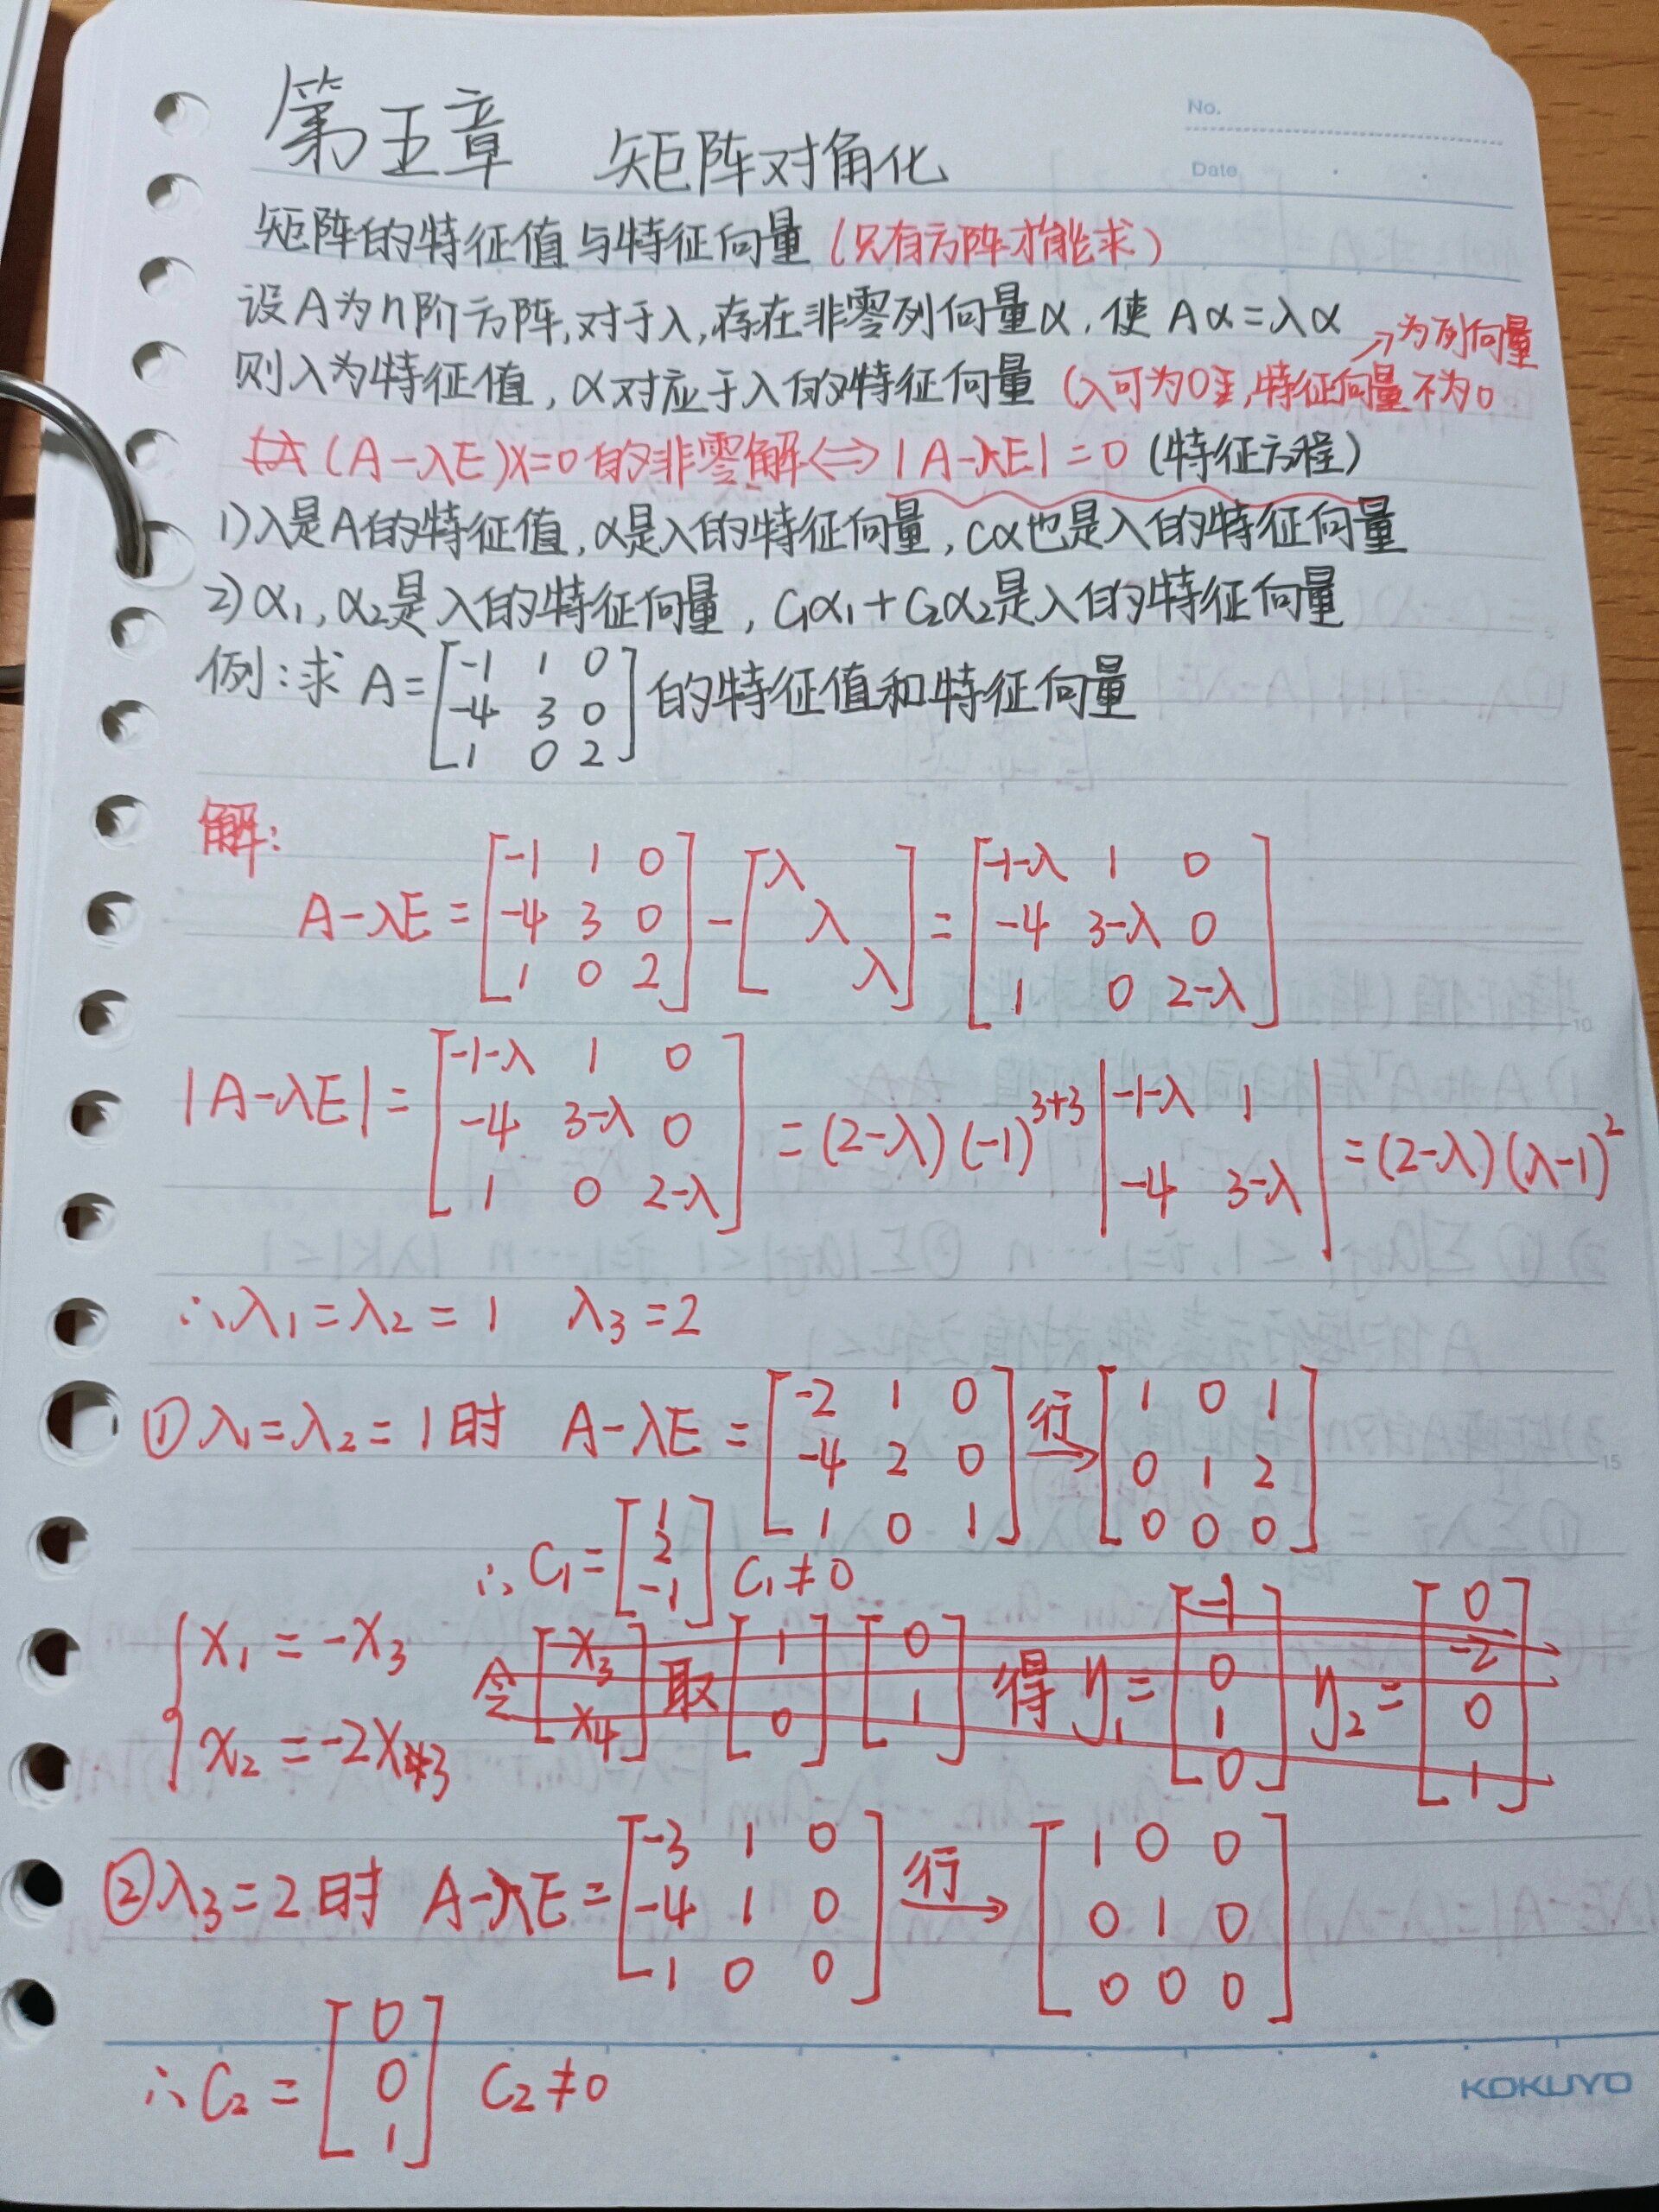 No.
Date
第五章 矩阵对角化
矩阵的特征值与特征向量(只有方阵才能求)
设A为n阶方阵,对于λ,存在非零列向量α,使Aα=λα
→为列向量
则λ为特征值,α对应于λ的特征向量(λ可为0,特征向量不为0
(A-λE)x=0的非零解⟺|A-λE|=0(特征方程)
1)λ是A的特征值,α是λ的特征向量,cα也是λ的特征向量
2)α₁,α₂是λ的特征向量,C₁α₁+C₂α₂是λ的特征向量
例:求A=[-1 1 0; -4 3 0; 1 0 2]的特征值和特征向量
解:
A-λE=[-1 1 0; -4 3 0; 1 0 2]-[λ λ λ]=[-1-λ 1 0; -4 3-λ 0; 1 0 2-λ]
|A-λE|=[-1-λ 1 0; -4 3-λ 0; 1 0 2-λ]=(2-λ)(-1)³⁺³|-1-λ 1; -4 3-λ|=(2-λ)(λ-1)²
∴λ₁=λ₂=1 λ₃=2
①λ₁=λ₂=1时 A-λE=[-2 1 0; -4 2 0; 1 0 1] 行→ [1 0 1; 0 1 2; 0 0 0]
∴C₁=[1; 2; -1] C₁≠0
{x₁=-x₃; x₂=-2x₃ 令[x₃; x₄]取[1; 0][0; 1]得η₁=[-1; 0; 1; 0] η₂=[0; -2; 0; 1]
②λ₃=2时 A-λE=[-3 1 0; -4 1 0; 1 0 0] 行→ [1 0 0; 0 1 0; 0 0 0]
∴C₂=[0; 0; 1] C₂≠0
KOKUYO